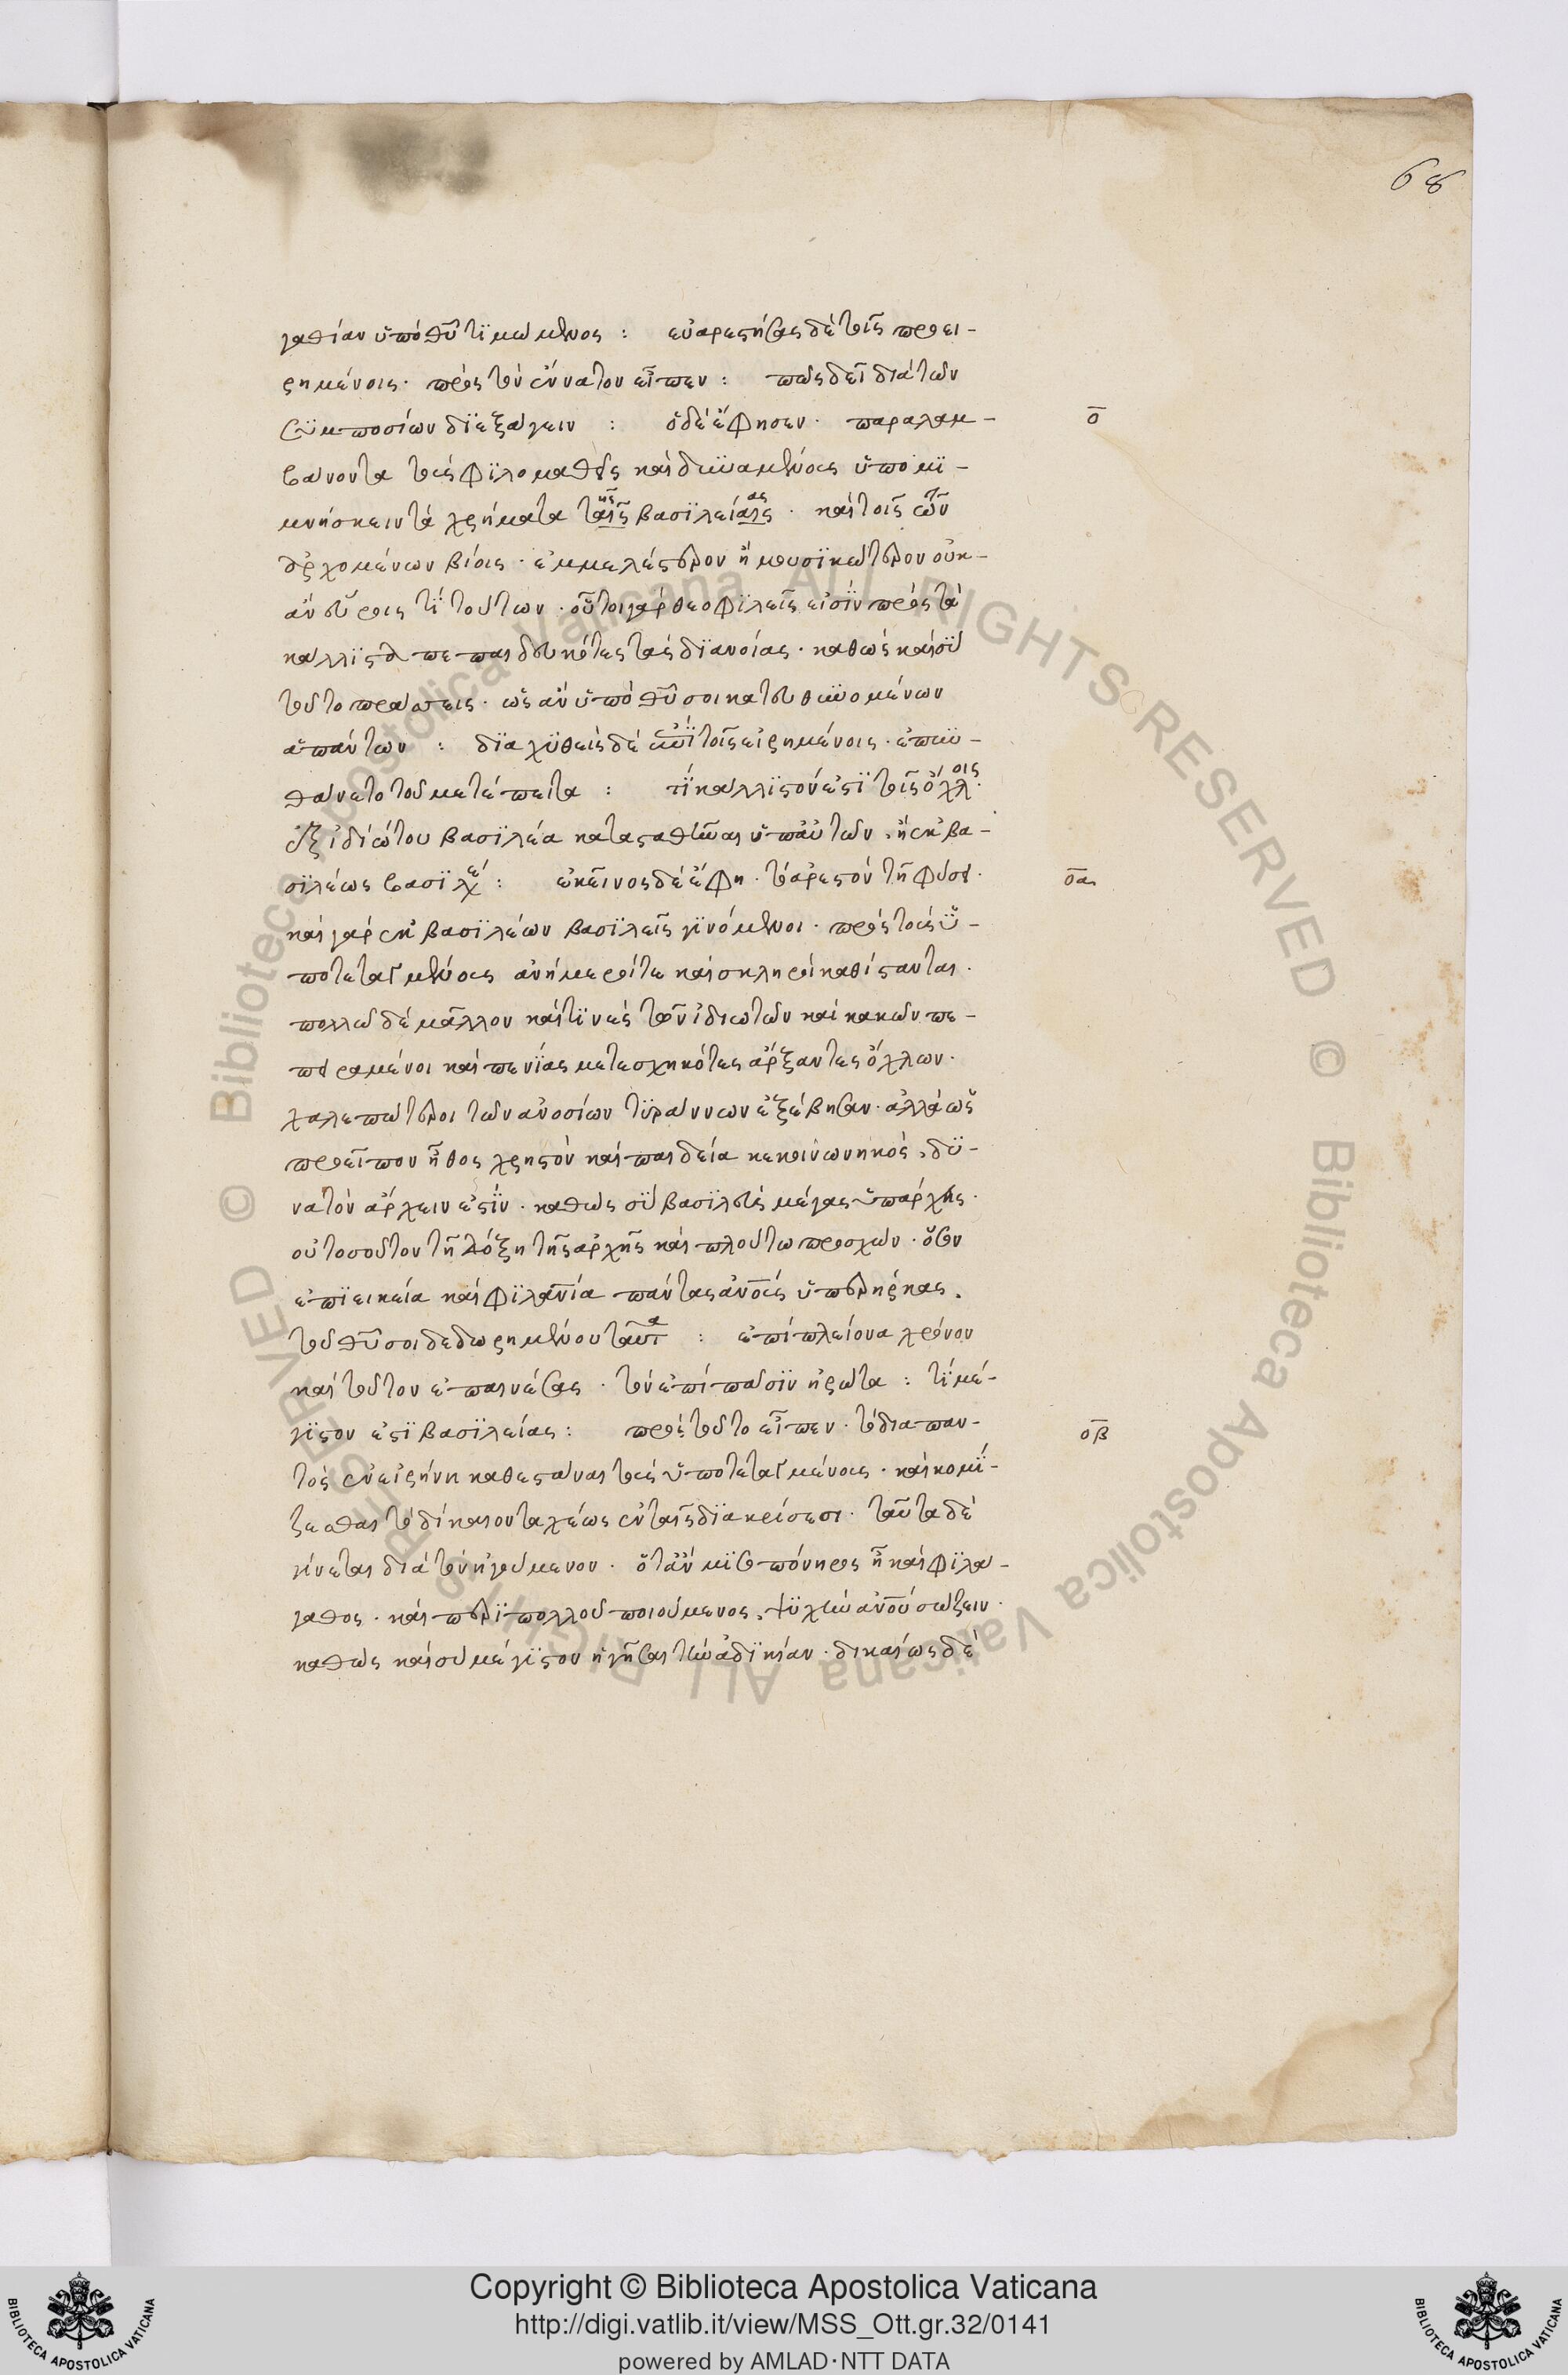 68
γαθίαν ὑπὸ θυ τϊμώμενος : εὐαρεστήσας δὲ τοῖς προει-
ρημένοις· πρὸς τὸν ἔννατον εἶπεν : πῶς δεῖ διὰ τῶν
συμποσίων διεξάγειν : ὁ δὲ ἔφησεν· παραλαμ- ο
βάνοντα τοὺς φϊλομαθεῖς καὶ δυναμένους ὑπομϊ-
μνήσκειν τὰ χρήματα ταῖς βασϊλείαις· καὶ τοῖς τῶν
ἀρχομένων βίοις· ἐμμελέστερον ἢ μουσϊκώτερον οὐκ-
ἂν εὕροις τϊ τούτων· οὗτοι γὰρ θεοφϊλεῖς εἰσϊν πρὸς τὰ
κάλλϊστα πεπαιδευκότες τὰς δϊανοίας· καθὼς καὶ σϋ
τοῦτο πράσσεις· ὡς ἂν ὑπὸ θυ σοι κατευθυνομένων
ἁπάντων : δϊαχϋθεὶς δὲ ἐπὶ τοῖς εἰρημένοις· ἐπυν-
θάνετο τοῦ μετέπειτα : τϊ κάλλϊστόν ἐστϊ τοῖς ὄχλοις·
ἐξ ἰδιώτου βασϊλέα κατασταθῆναι ὑπ' αὐτῶν, ἢ ἐκ βα-
σϊλέως βασϊλέα : ἐκεῖνος δὲ ἔφη· τὸ ἄριστον τῇ φύσει· οα
καὶ γὰρ ἐκ βασϊλέων βασϊλεῖς γϊνόμενοι· πρὸς τοὺς ϋ-
ποτεταγμένους ἀνήμεροί τε καὶ σκληροὶ καθίστανται·
πολλῷ δὲ μᾶλλον καὶ τϊνὲς τῶν ἰδιωτῶν καὶ κακῶν πε-
πειραμένοι καὶ πενϊας μετεσχηκότες ἄρξαντες ὄχλων·
χαλεπώτεροι τῶν ἀνοσίων τϋράννων ἐξέβησαν· ἀλλὰ ὡς
προεῖπον ἦθος χρηστὸν καὶ παιδεία κεκοινωνηκός, δϋ-
νατὸν ἄρχειν ἐστϊν· καθὼς σϋ βασϊλεὺς μέγας ὑπάρχεις·
οὐ τοσοῦτον τῇ δόξῃ τῆς ἀρχῆς καὶ πλούτω προσχών· ὅσον
ἐπϊεικεία καὶ φϊλανια πάντας ανους ὑπερῆρκας,
τοῦ θυ σοι δεδωρημένου ταῦτα : ἐπὶ πλείονα χρόνον
καὶ τοῦτον ἐπαινέσας· τὸν ἐπὶ πᾶσϊν ἠρώτα : τϊ μέ-
γϊστον ἐστϊ βασϊλείας : πρὸς τοῦτο εἶπεν· τὸ διαπαν- οβ
τὸς ἐν εἰρήνη καθεστάναι τοὺς ὑποτεταγμένους· καὶ κομϊ-
ζεσθαι τὸ δίκαιον ταχέως ἐν ταῖς δϊακρίσεσι· ταῦτα δὲ
γίνεται διὰ τὸν ἡγούμενον· ὅταν μϊσοπόνηρος ἦ καὶ φϊλά-
γαθος· καὶ περϊ πολλοῦ ποιούμενος, ψϋχὴν ανου σώζειν·
καθὼς καὶ σὺ μέγϊστον ἥγησαι τὴν ἀδϊκίαν· δικαίως δὲ
Copyright © Biblioteca Apostolica Vaticana
http://digi.vatlib.it/view/MSS_Ott.gr.32/0141
powered by AMLAD·NTT DATA